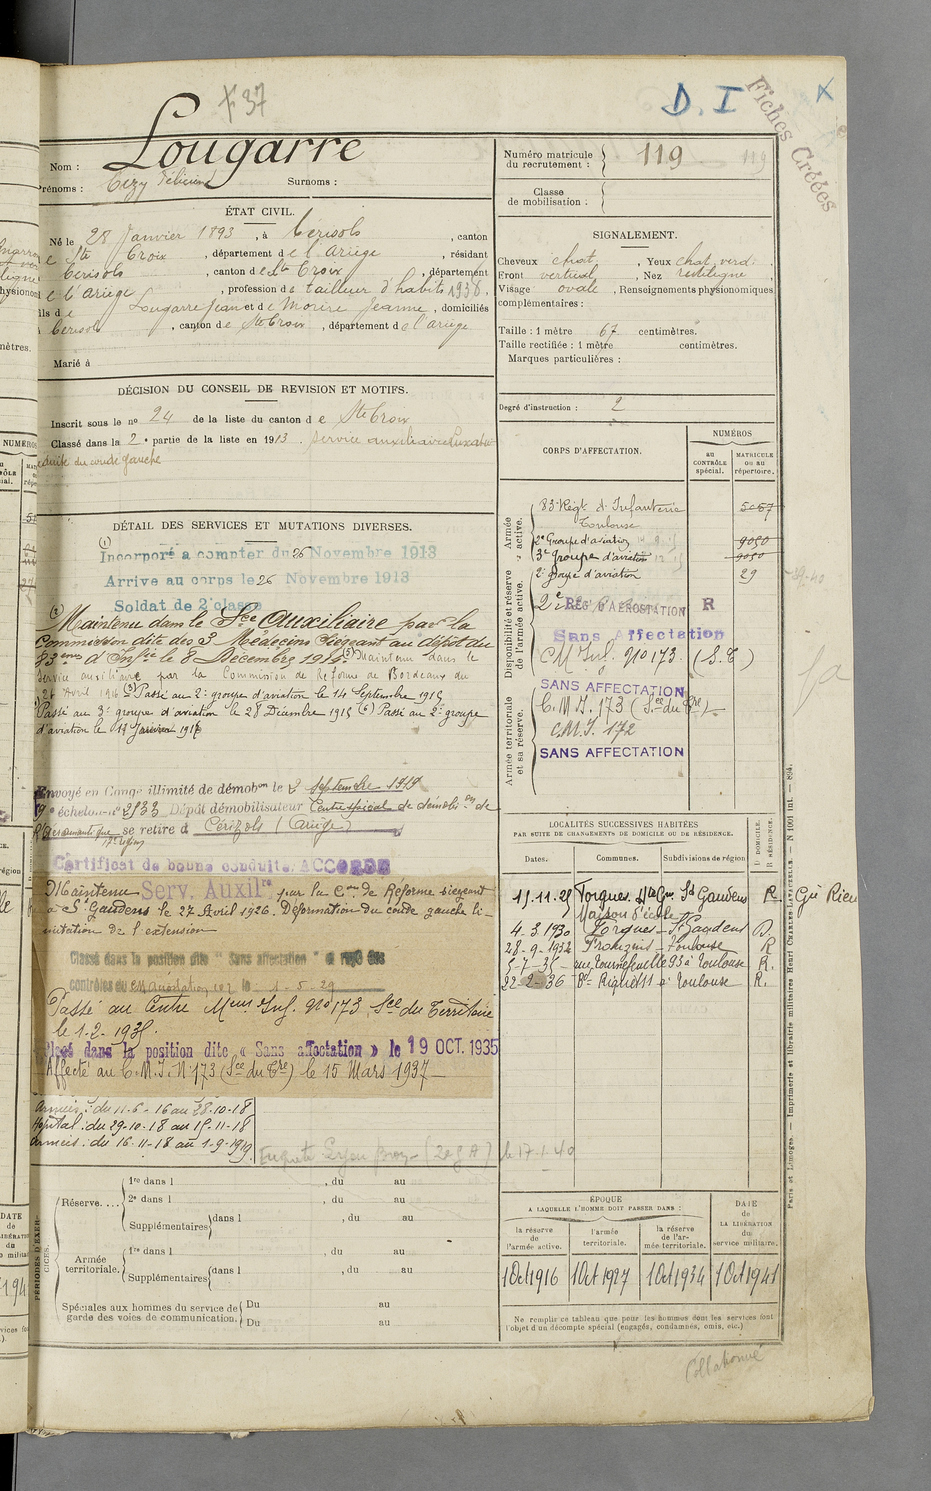 + 37
D. I
X
Fiches Créées
Nom : Lougarre
Prénoms : Félicien Surnoms :
Numéro matricule du recrutement : 119
119
Classe de mobilisation :
ÉTAT CIVIL.
Né le 28 Janvier 1893, à Cérisols, canton
de Ste Croix, département de l'Ariège, résidant
Cerisols, canton de Ste Croix, département
de l'Ariège, profession de tailleur d'habits 1938,
fils de Lougarre Jean et de Jeanne, domiciliés
à Cerisols, canton de Ste Croix, département de l'ariège
Marié à
SIGNALEMENT.
Cheveux chat, Yeux chat verd.
Front vertical, Nez rectiligne
Visage ovale, Renseignements physionomiques
complémentaires :
Taille : 1 mètre 67 centimètres.
Taille rectifiée : 1 mètre centimètres.
Marques particulières :
Degré d'instruction : 2
DÉCISION DU CONSEIL DE REVISION ET MOTIFS.
Inscrit sous le no 24 de la liste du canton de Ste Croix
Classé dans la 2e partie de la liste en 1913. Service auxiliaire
du coude gauche
CORPS D'AFFECTATION.
NUMÉROS
au CONTRÔLE spécial.
MATRICULE ou au répertoire.
Armée active.
83e Régt d'Infanterie 5067
Toulouse
2e Groupe d'aviation 9050
3e Groupe d'aviation 9050
Disponibilité et réserve de l'armée active.
2e groupe d'aviation 29
2e RÉGt D'AÉROSTATION R
Sans Affectation
CM Inf. No 173. (S.T)
Armée territoriale et sa réserve.
SANS AFFECTATION
C.M.I. 173 (Sce du Tre)
C.M.I. 172
SANS AFFECTATION
DÉTAIL DES SERVICES ET MUTATIONS DIVERSES.
(1) Incorporé à compter du 26 Novembre 1913
Arrive au corps le 26 Novembre 1913
Soldat de 2e classe
(2) Maintenu dans le Sce Auxiliaire par la
Commission dite des 3 Médecins siégeant au dépôt du
83ème d'Infie le 8 Décembre 1914. (5) Maintenu dans le
Service auxiliaire par la Commission de Réforme de Bordeaux du
Avril 1916 (3) Passé au 2e groupe d'aviation le 14 Septembre 1915
Passé au 3e groupe d'aviation le 28 Décembre 1915 (6) Passé au 2e groupe
d'aviation le
Envoyé en Congé illimité de démobon le 2 Septembre 1919
échelon no 2533 Dépôt démobilisateur Centre spécial de démobion de
se retire à Cérizols (Ariège)
Certificat de bonne conduite ACCORDÉ
Maintenu Serv. Auxilre par la Com de Réforme siégeant
à St Gaudens le 27 Avril 1926. Déformation du coude gauche li-
mitation de l'extension
Classé dans la position dite "Sans affectation" et rayé des
contrôles du le 1-5-29
Passé au Centre Mtion Inf. No 173 Sce du Territoire
le 1-2-1935.
Placé dans la position dite « Sans affectation » le 19 OCT. 1935
Affecté au C.M.I. No 173 (Sce du Tre) le 15 Mars 1937
Armées : du 11-6-16 au 28-10-18
Hôpital : du 29-10-18 au 15-11-18
Armées : du 16-11-18 au 1-9-1919
le 17-1-40
LOCALITÉS SUCCESSIVES HABITÉES
PAR SUITE DE CHANGEMENTS DE DOMICILE OU DE RÉSIDENCE.
D DOMICILE. R RÉSIDENCE.
Dates. Communes. Subdivisions de région
15.11.25 Forgues. Hte Gne St Gaudens R
Maison d'école
4-3-1930 Forgues St Gaudens D.
28-9-1932 Frouzins Toulouse R
5-7-35 rue Tournefeuille 93 à Toulouse R.
22-2-36 Bd Riquet 11 à Toulouse R.
PÉRIODES D'EXERCICES.
Réserve....
1re dans l , du au
2e dans l , du au
Supplémentaires dans l , du au
Armée territoriale.
1re dans l , du au
Supplémentaires dans l , du au
Spéciales aux hommes du service de garde des voies de communication.
Du au
Du au
ÉPOQUE
A LAQUELLE L'HOMME DOIT PASSER DANS :
la réserve de l'armée active.
l'armée territoriale.
la réserve de l'armée territoriale.
DATE de LA LIBÉRATION du service militaire.
1 Oct 1916 1 Oct 1927 1 Oct 1934 1 Oct 1941
Ne remplir ce tableau que pour les hommes dont les services font
l'objet d'un décompte spécial (engagés, condamnés, omis, etc.)
Paris et Limoges. — Imprimerie et librairie militaires Henri CHARLES-LAVAUZELLE. — N 1001 Int. — 894.
Collationné